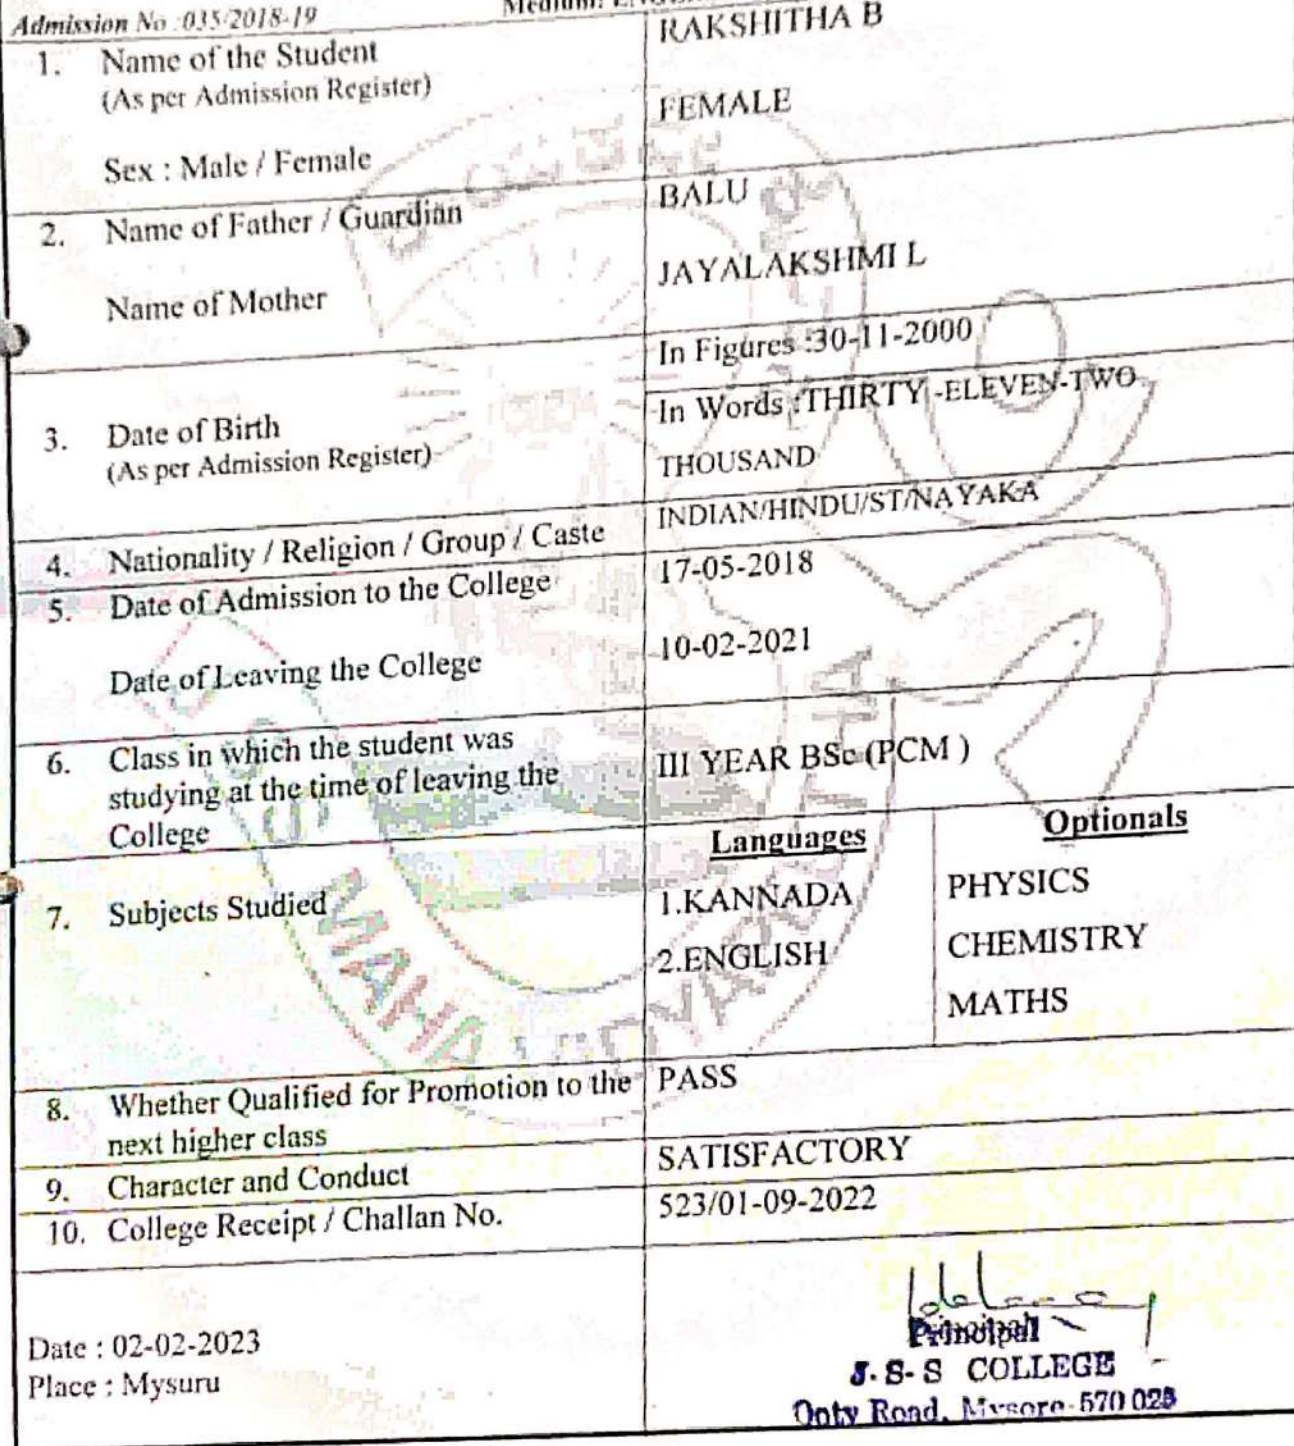 Admission No :035/2018-19
Medium:
1. Name of the Student
(As per Admission Register)
RAKSHITHA B
Sex : Male / Female
FEMALE
2. Name of Father / Guardian
BALU
Name of Mother
JAYALAKSHMI L
3. Date of Birth
(As per Admission Register)
In Figures :30-11-2000
In Words :THIRTY -ELEVEN-TWO
THOUSAND
4. Nationality / Religion / Group / Caste
INDIAN/HINDU/ST/NAYAKA
5. Date of Admission to the College
17-05-2018
Date of Leaving the College
10-02-2021
6. Class in which the student was
studying at the time of leaving the
College
III YEAR BSc (PCM )
7. Subjects Studied
Languages
1.KANNADA
2.ENGLISH
Optionals
PHYSICS
CHEMISTRY
MATHS
8. Whether Qualified for Promotion to the
next higher class
PASS
9. Character and Conduct
SATISFACTORY
10. College Receipt / Challan No.
523/01-09-2022
Date : 02-02-2023
Place : Mysuru
Principal
J. S- S COLLEGE
Ooty Road, Mysore-570 025
MAHA